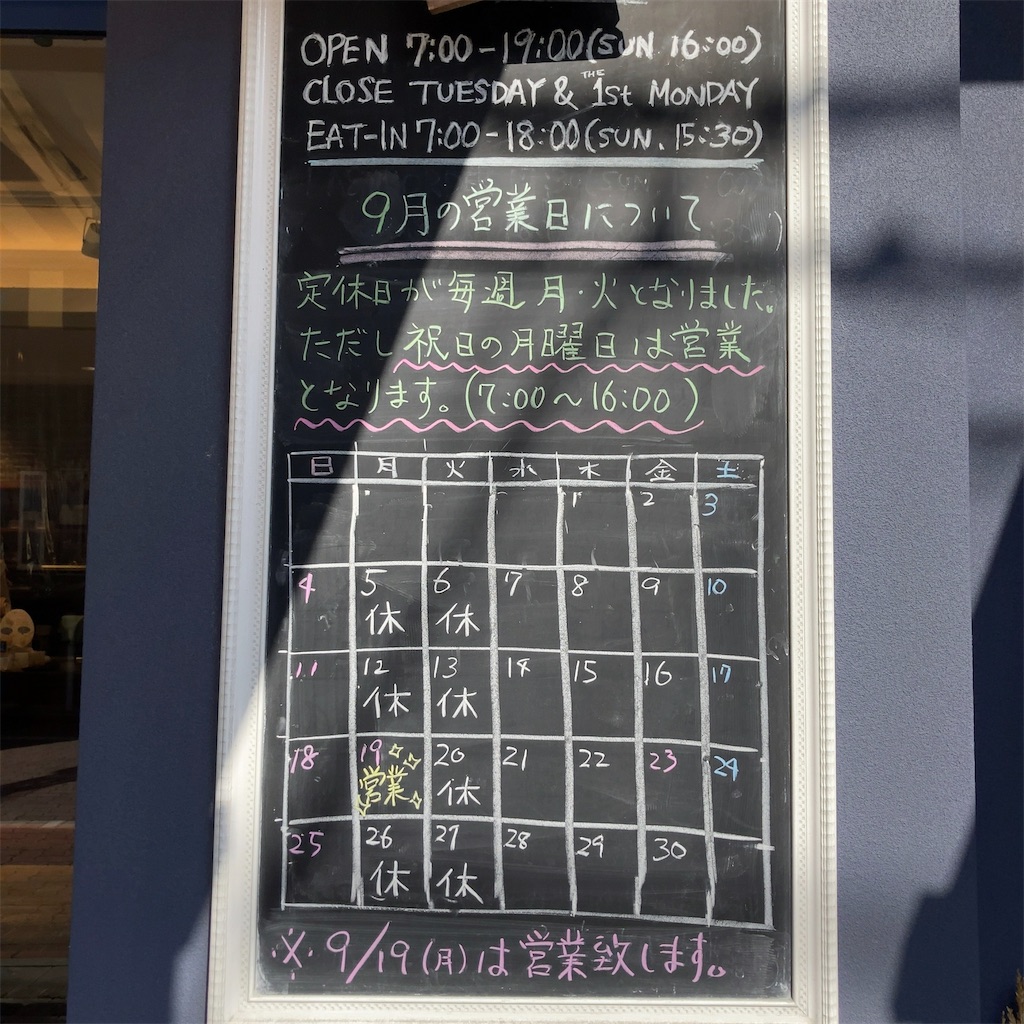 OPEN 7:00-19:00(SUN 16:00)
CLOSE TUESDAY & THE 1st MONDAY
EAT-IN 7:00-18:00(SUN. 15:30)
9月の営業日について
定休日が毎週 月・火となりました。
ただし祝日の月曜日は営業
となります。(7:00~16:00)
日 月 火 水 木 金 土
1 2 3
4 5 6 7 8 9 10
休 休
11 12 13 14 15 16 17
休 休
18 19 20 21 22 23 24
営業 休
25 26 27 28 29 30
休 休
※ 9/19(月)は営業致します。